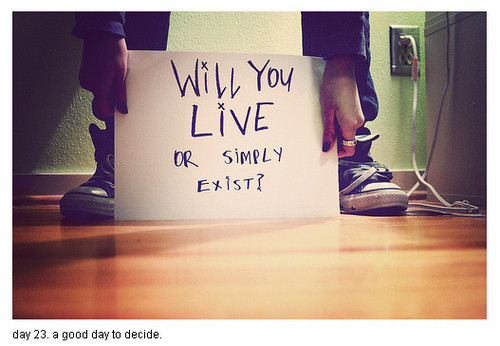 WiLL YOU
LiVE
OR SiMPLY
EXiST?
day 23. a good day to decide.